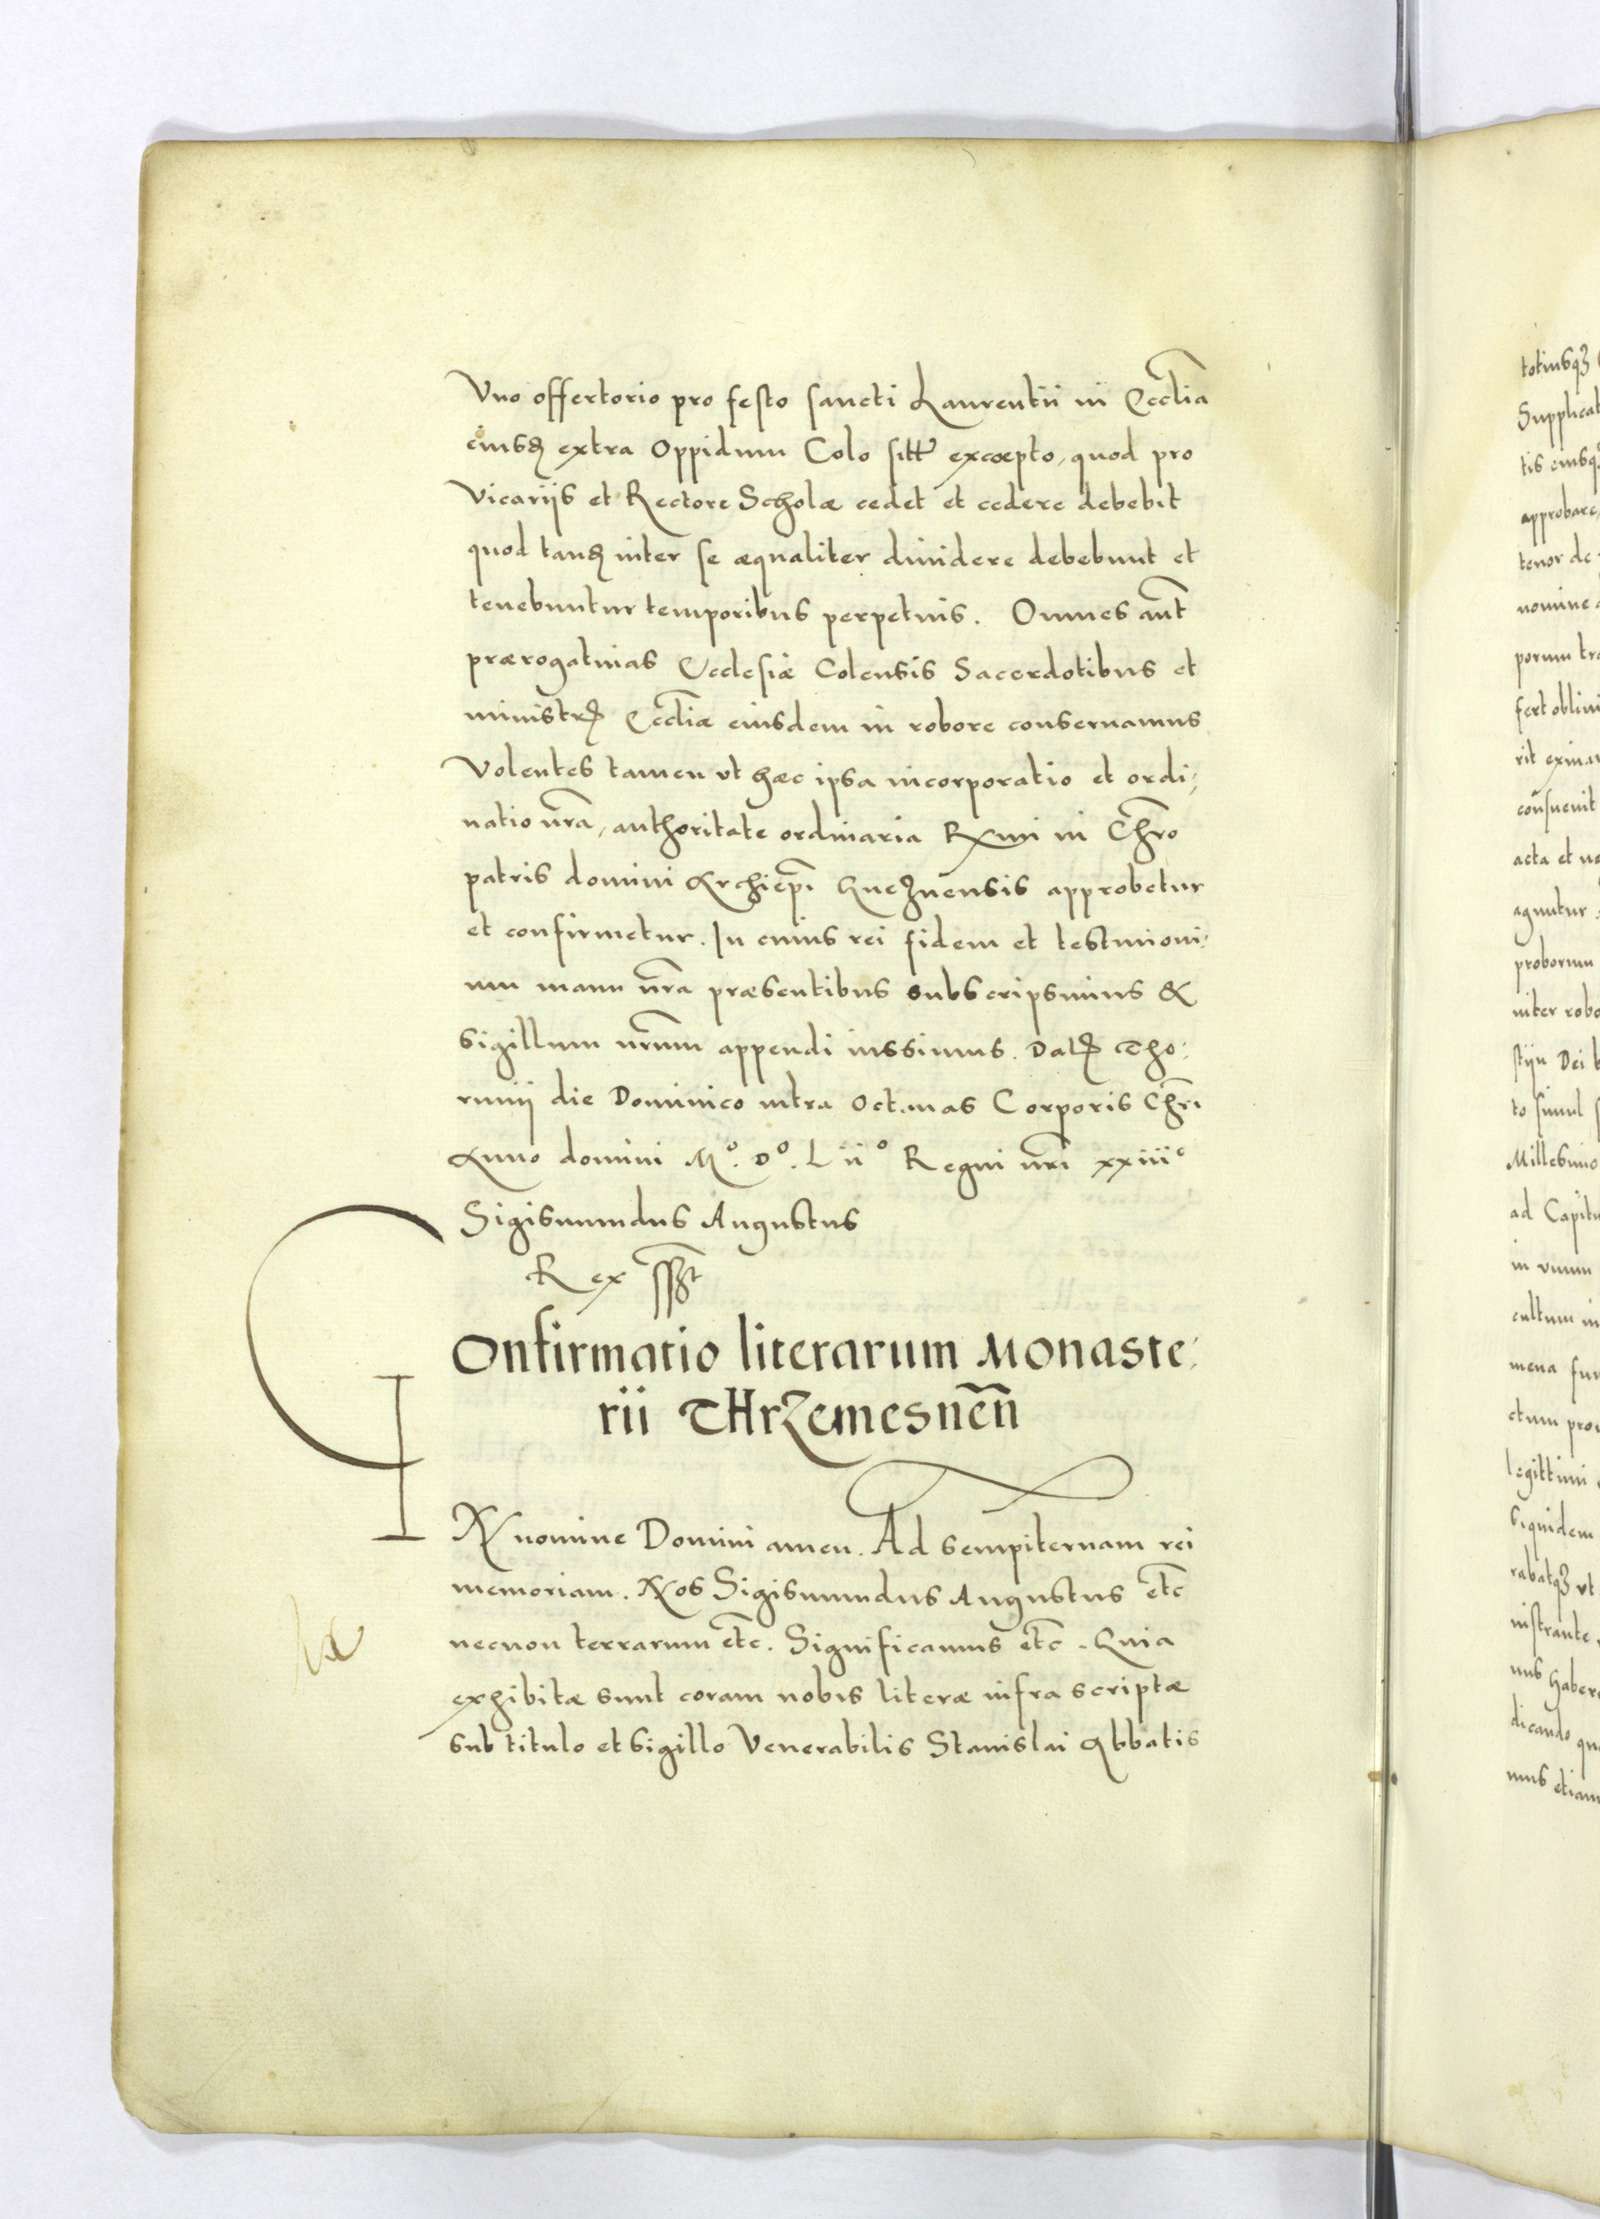 Vno offertorio pro festo sancti Laurentii in Eccl̃ia
eiusdꝫ extra Oppidum Colo sitt̃ excoepto, quod pro
Vicariis et Rectore Scholæ cedet et cedere debebit
quod tandꝫ inter se æqualiter diuidere debebunt et
tenebuntur temporibus perpetuis. Omnes aũt
prærogatiuas Ecclesiæ Colensis Sacerdotibus et
ministrꝭ Eccl̃iæ eiusdem in robore conseruamus
Volentes tamen vt hæc ipsa incorporatio et ordi,
natio nr̃a, authoritate ordinaria Rx̃mi in Chr̃o
patris domini Archiep̃i Gneznensis approbetur
et confirmetur. In cuius rei fidem et testimoni,
um manu nr̃a præsentibus subscripsimus &
sigillum nr̃um appendi iussimus. Datꝭ Tho,
runij die Dominico intra Octauas Corporis Chr̃i
Anno domini Mº. Dº. Liiº Regni nr̃i xxiiiº
Sigismundus Augustus
Rex ss̃t
Confirmatio literarum Monaste,
rii THrzemesneñ
IN nomine Domini amen. Ad sempiternam rei
memoriam. Nos Sigismundus Augustus et̃c
necnon terrarum et̃c. Significamus et̃c. Quia
exhibitæ sunt coram nobis literæ infra scriptæ
sub titulo et sigillo Venerabilis Stanislai Abbatis
totiusqꝫ
Supplicat
tis eiusq
approbare,
tenor de
nomine
porum tra
fert obliui
rit
consueuit
acta et
aguntur
proborum
niter robo
Dei
to simul
Millesimo
ad Capitu
in vnum
cultum in
mena fun
ctum pro
legittimi
siquidem
rabatqꝫ vt
nistrante
nus haber
dicando
mus etiam